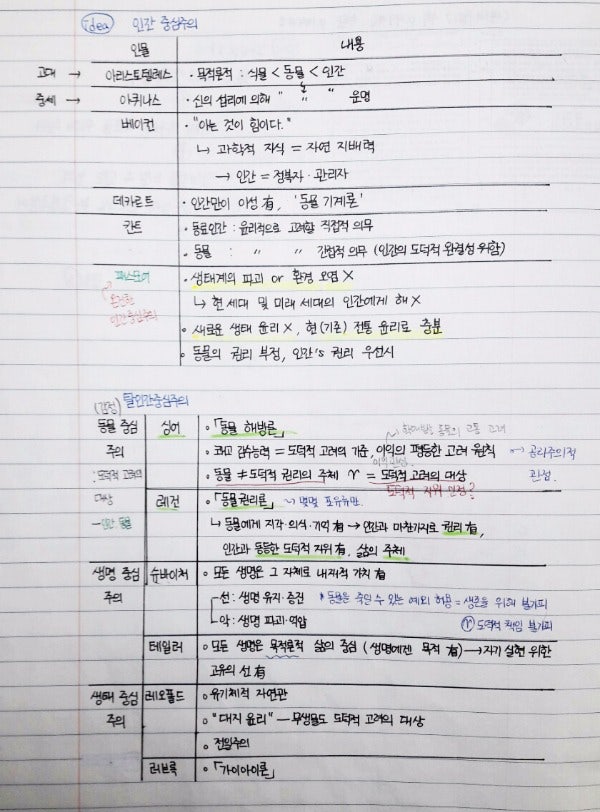 idea 인간 중심주의
인물 내용
고대 → 아리스토텔레스 · 목적론적 : 식물 < 동물 < 인간
중세 → 아퀴나스 · 신의 섭리에 의해 " 〃 " 운명
베이컨 · "아는 것이 힘이다."
↳ 과학적 지식 = 자연 지배력
→ 인간 = 정복자 · 관리자
데카르트 · 인간만이 이성 有, '동물 기계론'
칸트 · 동료인간 : 윤리적으로 고려할 직접적 의무
· 동물 : 〃 〃 간접적 의무 (인간의 도덕적 완결성 위함)
패스모어 · 생태계의 파괴 or 환경 오염 X
온건한 ↳ 현 세대 및 미래 세대의 인간에게 해 X
인간중심주의 · 새로운 생태 윤리 X, 현(기존) 전통 윤리로 충분
· 동물의 권리 부정, 인간's 권리 우선시
(감정) 탈인간중심주의
동물 중심 싱어 · 「동물 해방론」 동물의 고통 고려
주의 · 쾌고 감수능력 = 도덕적 고려의 기준, 이익의 평등한 고려 원칙 → 공리주의적
이익관심
: 도덕적 고려의 · 동물 ≠ 도덕적 권리의 주체 r = 도덕적 고려의 대상 관점.
도덕적 지위 인정?
대상 레건 · 「동물 권리론」 몇몇 포유류만.
- 인간, 동물 ↳ 동물에게 지각 · 의식 · 기억 有 → 인간과 마찬가지로 권리 有,
인간과 동등한 도덕적 지위 有, 삶의 주체
생명 중심 슈바이처 · 모든 생명은 그 자체로 내재적 가치 有
주의 선 : 생명 유지 · 증진 * 동물을 죽일 수 있는 예외 허용 = 생존을 위해 불가피
악 : 생명 파괴 · 억압 ⓡ 도덕적 책임 불가피
테일러 · 모든 생명은 목적론적 삶의 중심 (생명에겐 목적 有) → 자기 실현 위한
고유의 선 有
생태 중심 레오폴드 · 유기체적 자연관
주의 · "대지 윤리" — 무생물도 도덕적 고려의 대상
· 전일주의
러브록 · 「가이아이론」